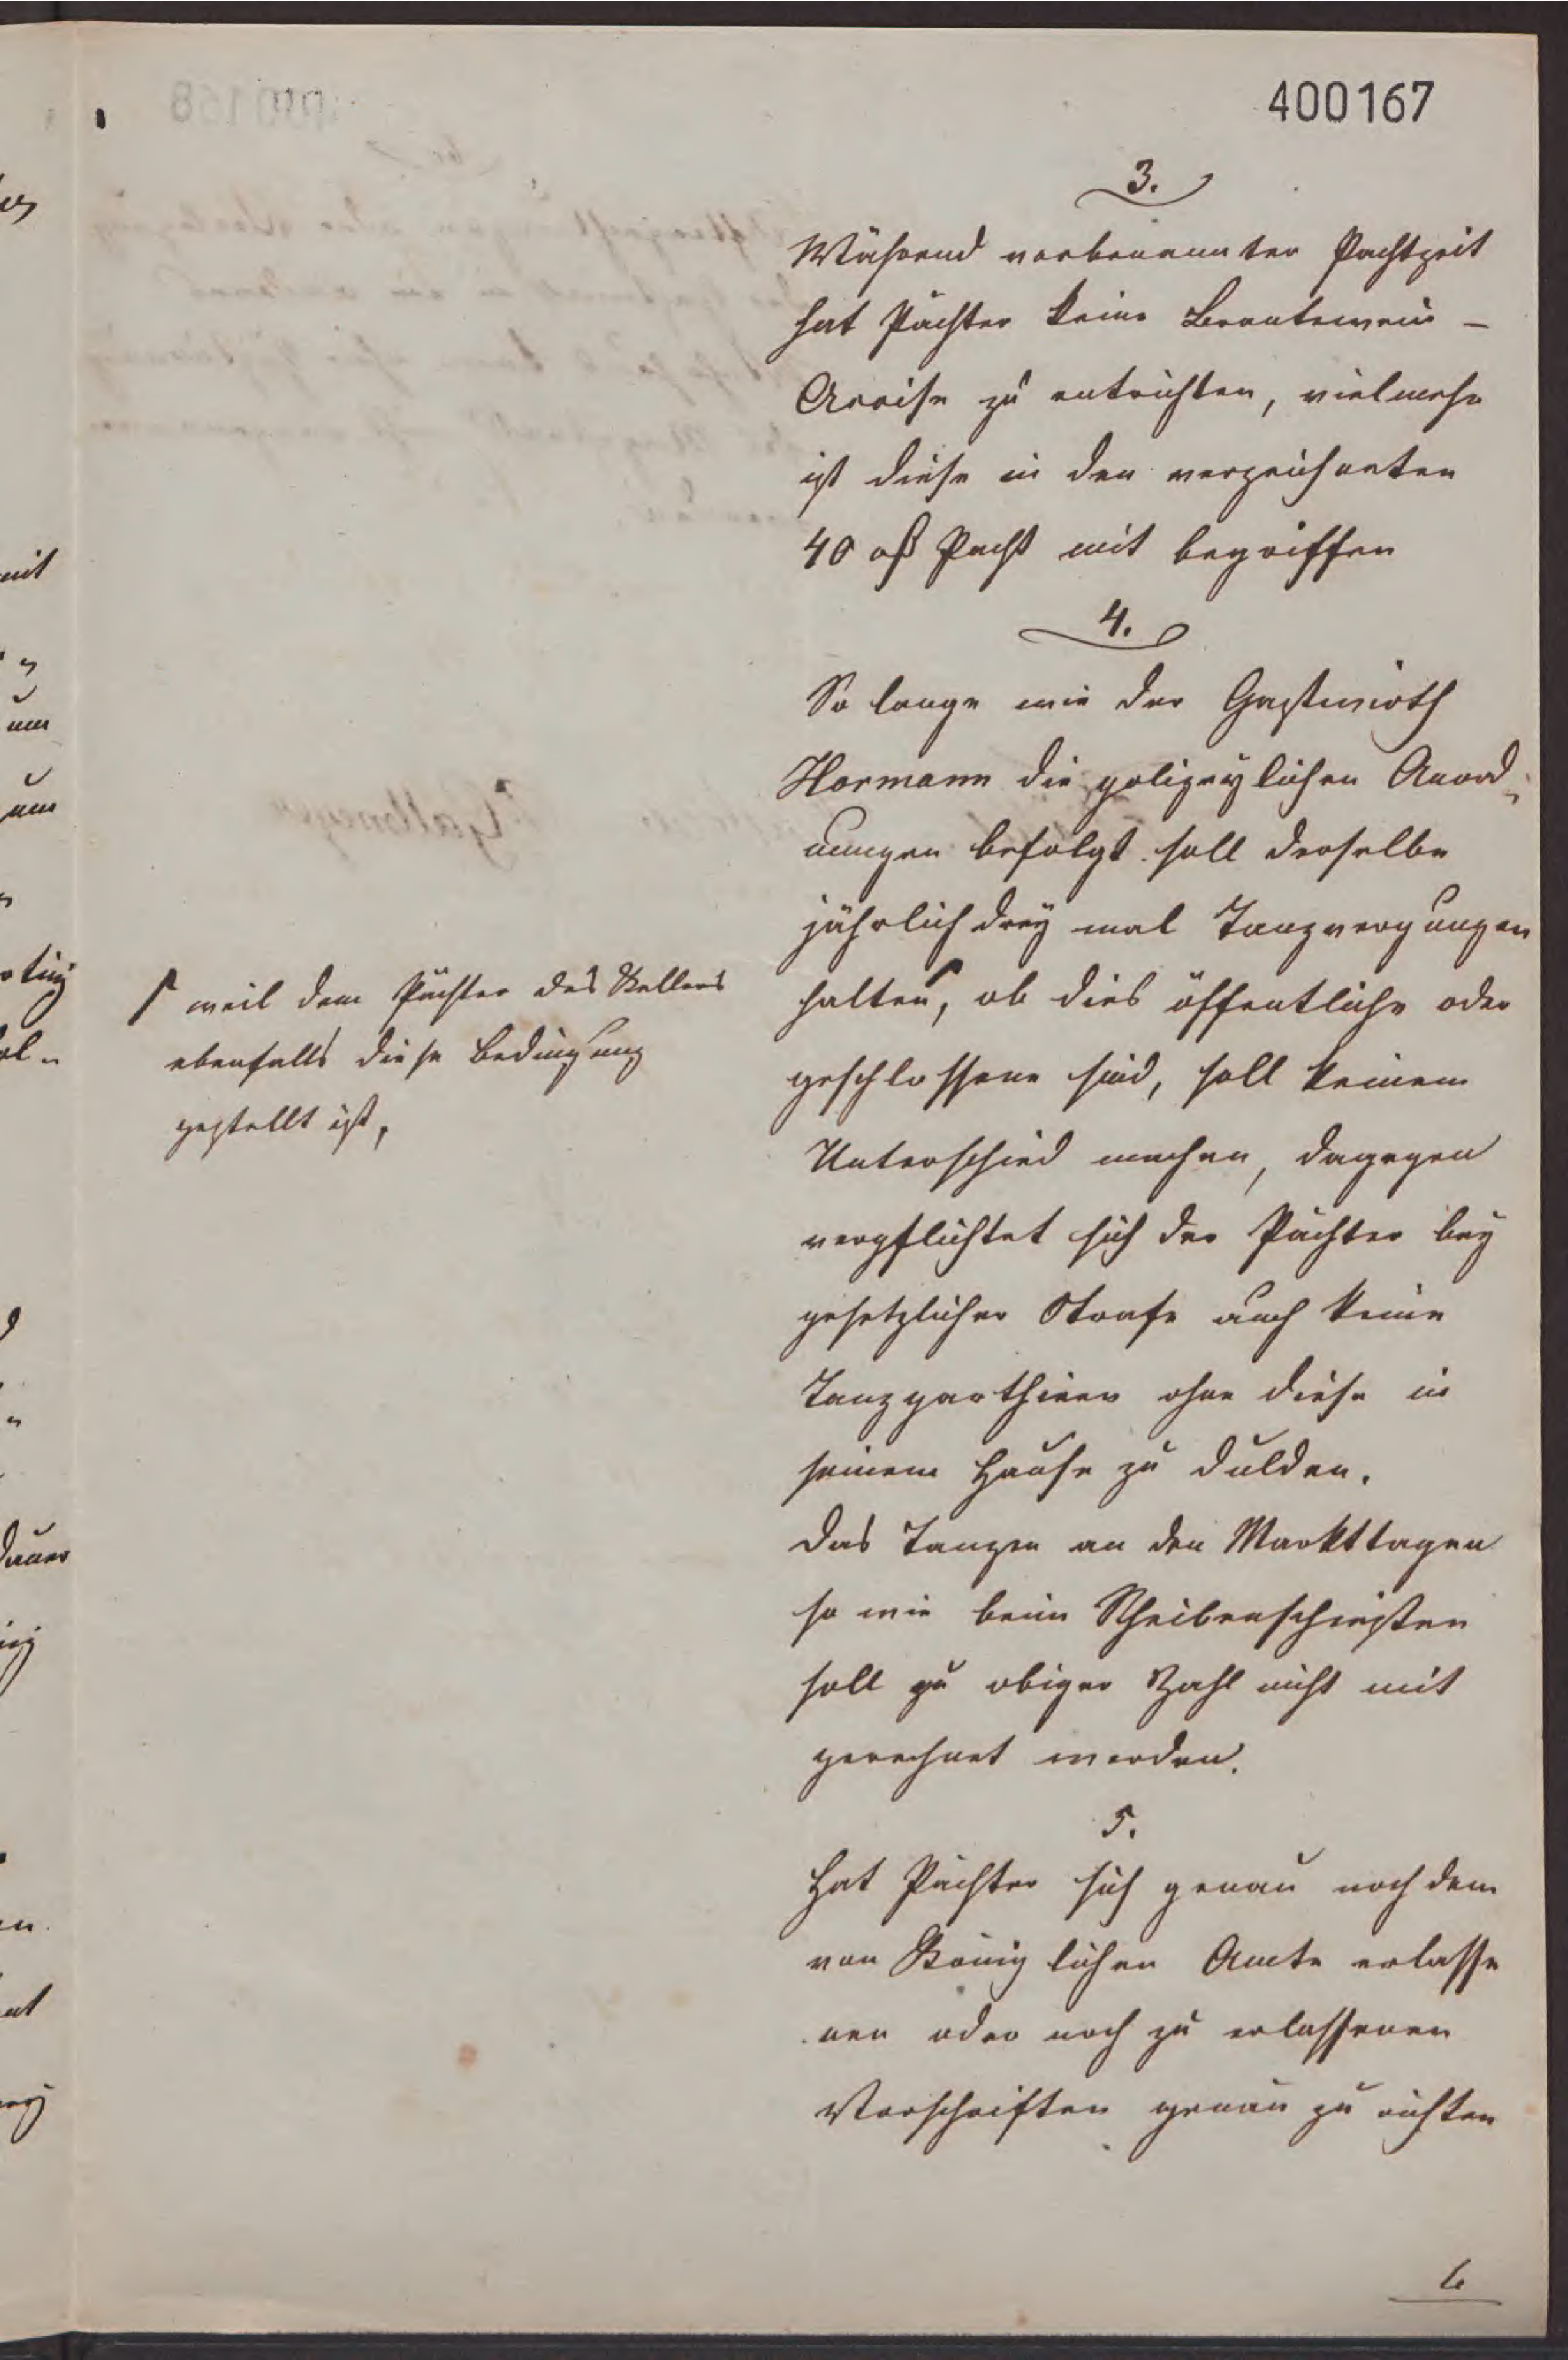 400167
3.
Während vorbenannter Pachtzeit
hat Pächter keine Brantewein -
Accise zu entrichten, vielmehr
ist diese in den verzeichneten
40 rß Pacht mit begriffen
4.
So lange wie der Gastwirth
Hormann die polizeylichen Anord¬
nungen befolgt soll derselbe
jährlich drey mal Tanzvergungen
halten, ob dies öffentliche oder
geschlossene sind, soll keinen
Unterschied machen, dagegen
verpflichtet sich der Pächter bey
gesetzlicher Strafe auch keine
Tanzparthieen ohne diese in
seinem Hause zu dulden.
Das Tanzen an den Markttagen
so wie beim Scheibenschießen
soll zu obiger Zahl nicht mit
gerechnet werden.
weil dem Pächter des Kellers
ebenfalls diese Bedingung
gestellt ist,
5.
Hat Pächter sich genau nach dem
von Königlichen Amte erlasse
nen oder noch zu erlassenen
Vorschriften genau zu richten
6